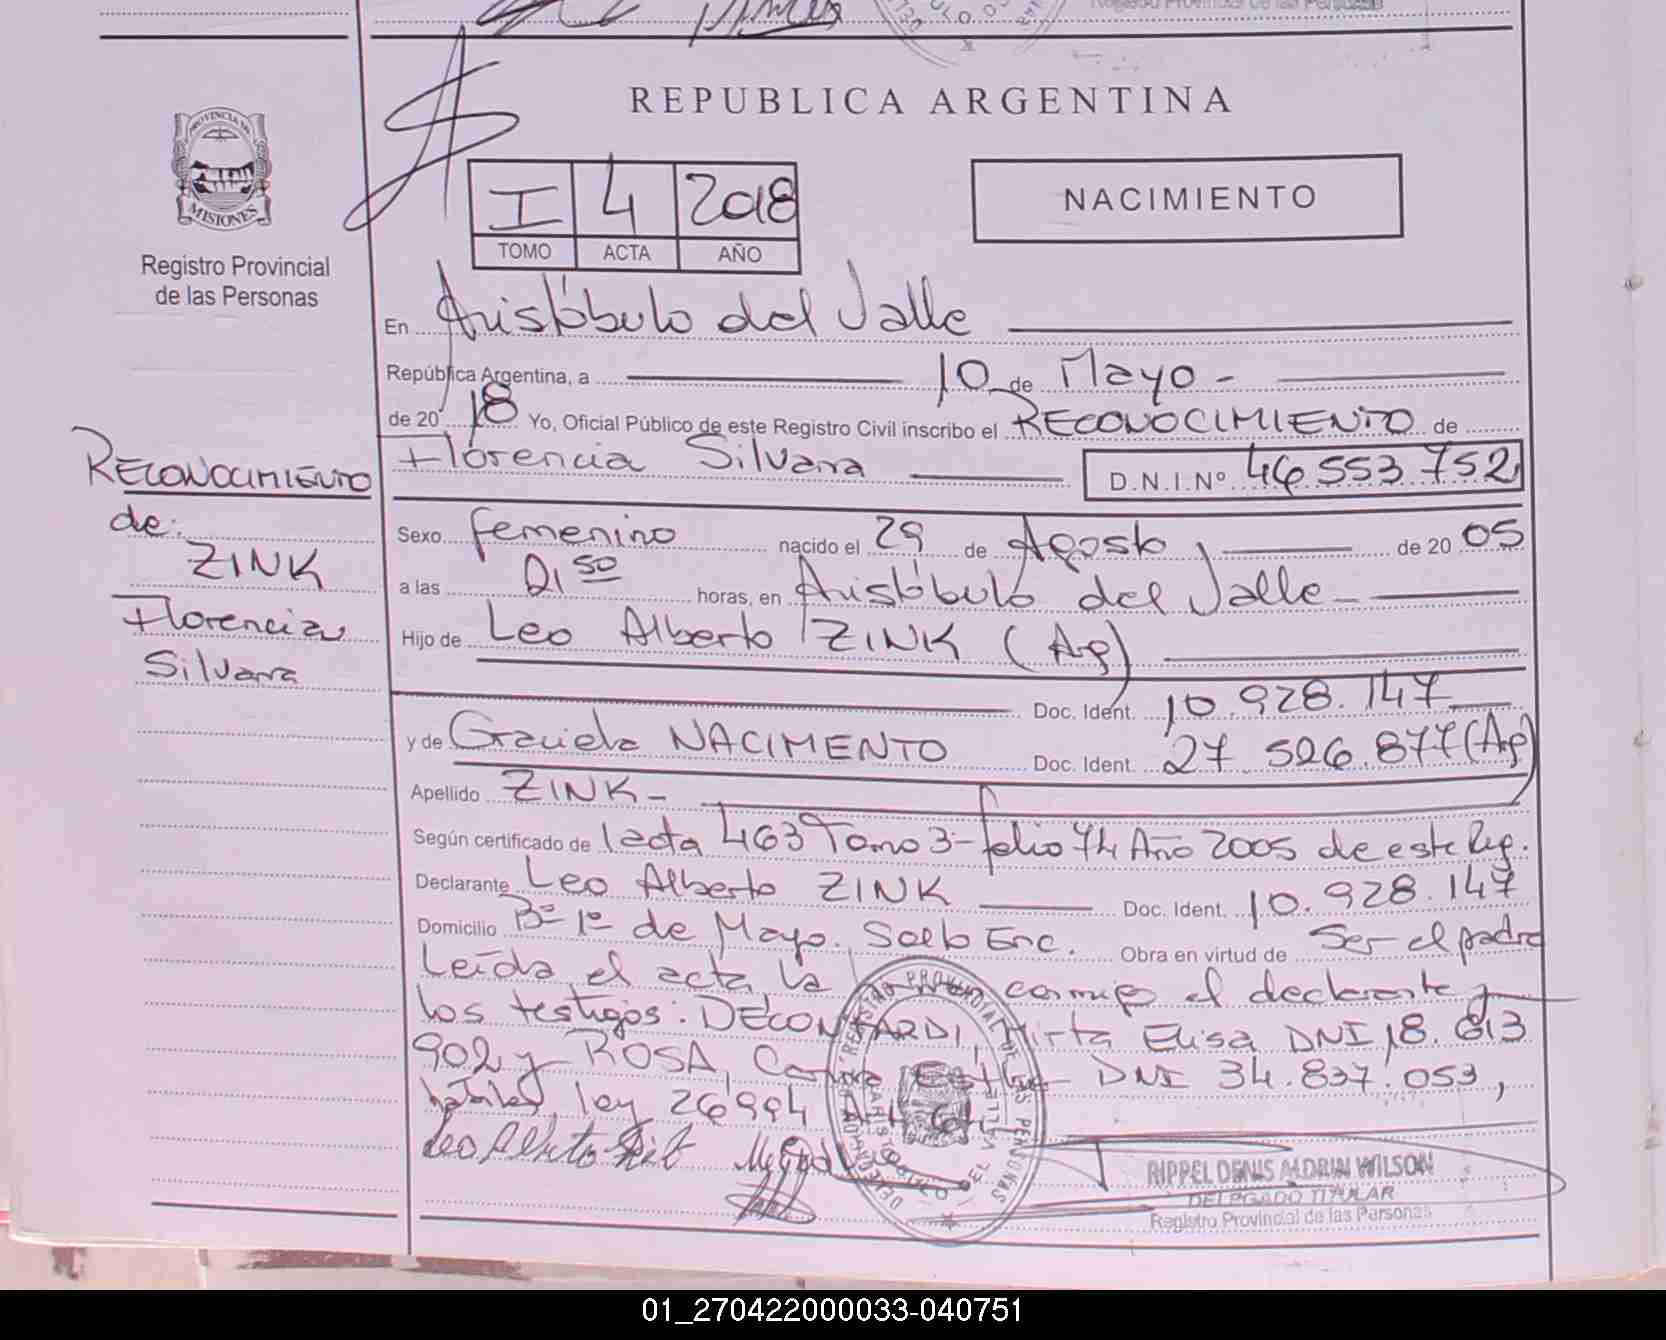 REPUBLICA ARGENTINA
PROVINCIA DE
MISIONES
Registro Provincial
de las Personas
I 4 2018
TOMO ACTA AÑO
NACIMIENTO
En Aristóbulo del Valle
República Argentina, a 10 de Mayo -
de 20 18 Yo, Oficial Público de este Registro Civil inscribo el RECONOCIMIENTO de
Florencia Silvana D.N.I.Nº 46.553.752
RECONOCIMIENTO
de:
ZINK
Florencia
Silvana
Sexo femenino nacido el 29 de Agosto de 20 05
a las 21 50 horas, en Aristóbulo del Valle -
Hijo de Leo Alberto ZINK (Arg)
Doc. Ident. 10.928.147
y de Graciela NACIMENTO Doc. Ident. 27 526.877 (Arg)
Apellido ZINK -
Según certificado de 1 acta 463 Tomo 3 - folio 74 Año 2005 de este Reg.
Declarante Leo Alberto ZINK Doc. Ident. 10.928.147
Domicilio Bº 1º de Mayo. Salto Enc. Obra en virtud de Ser el padre
Leída el acta, la conmigo el declarante y
los testigos: DECONTARDI, Mirta Elisa DNI 18.613
902 y ROSA, Carina Esther DNI 34.837.053,
hábiles, ley 26994
Leo Alberto
RIPPEL DENIS ALDRIN WILSON
DELEGADO TITULAR
Registro Provincial de las Personas
01_270422000033-040751